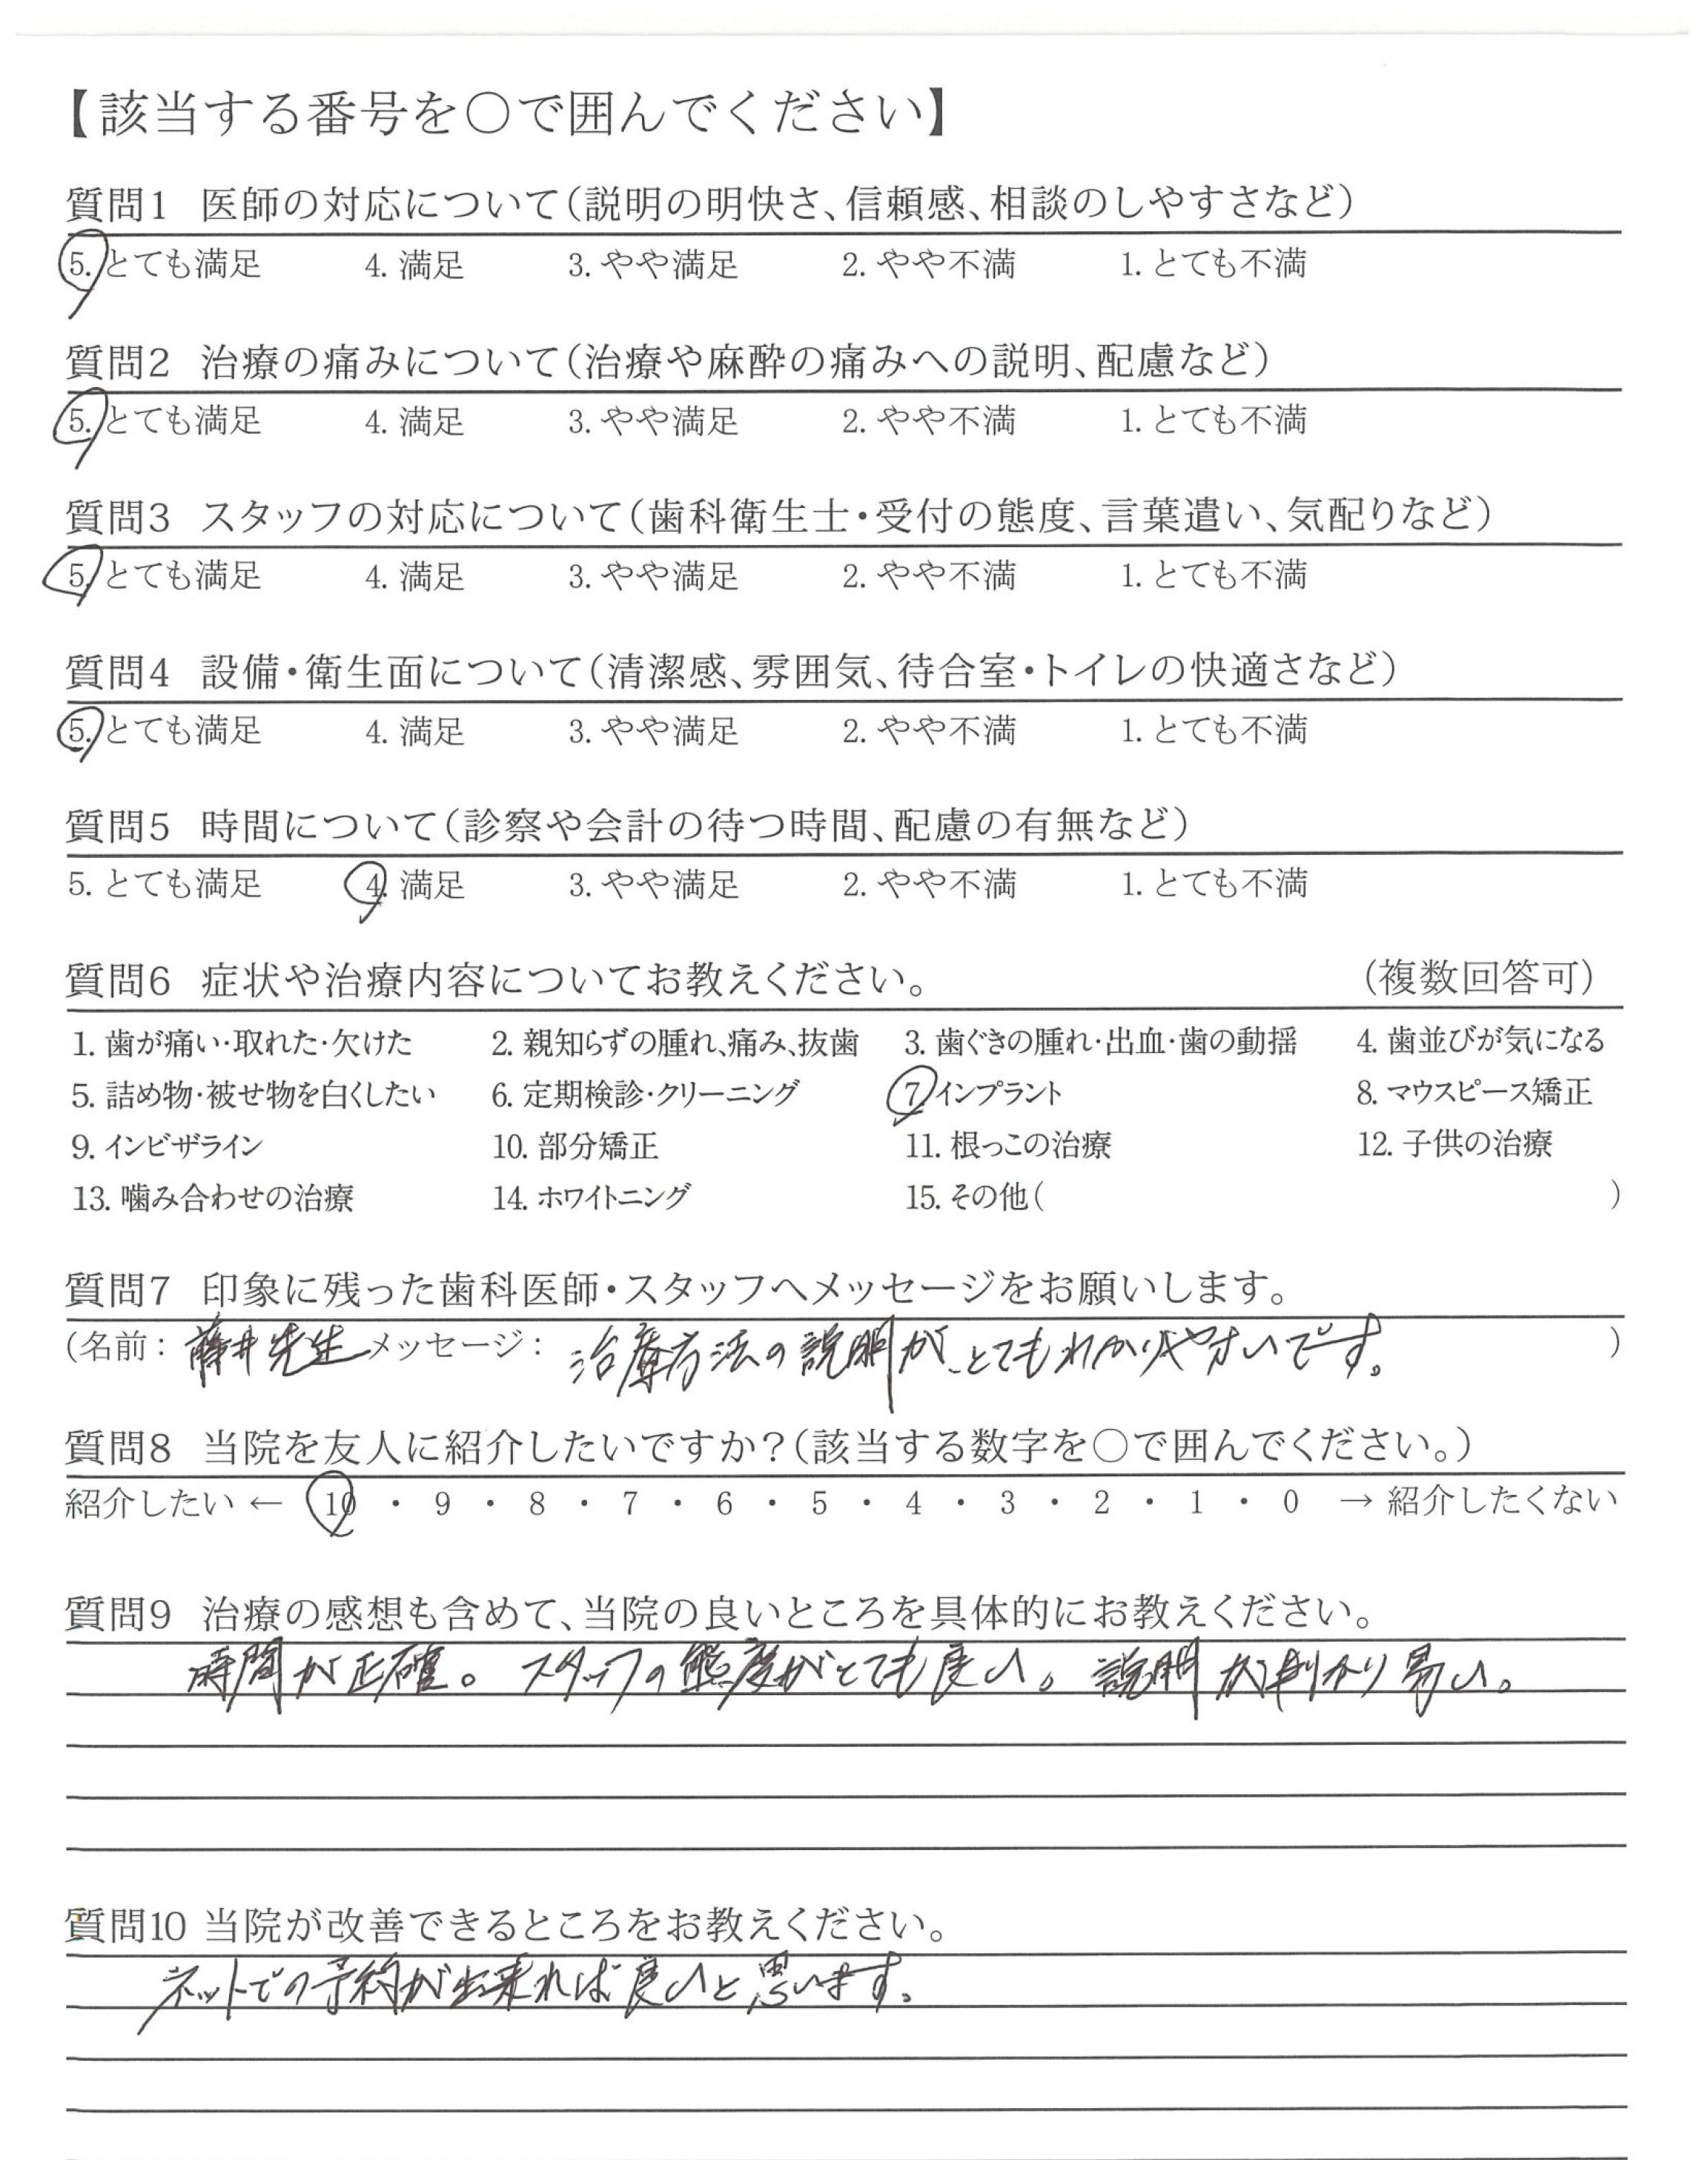 【該当する番号を〇で囲んでください】
質問1 医師の対応について（説明の明快さ、信頼感、相談のしやすさなど）
5. とても満足 4. 満足 3. やや満足 2. やや不満 1. とても不満
質問2 治療の痛みについて（治療や麻酔の痛みへの説明、配慮など）
5. とても満足 4. 満足 3. やや満足 2. やや不満 1. とても不満
質問3 スタッフの対応について（歯科衛生士・受付の態度、言葉遣い、気配りなど）
5. とても満足 4. 満足 3. やや満足 2. やや不満 1. とても不満
質問4 設備・衛生面について（清潔感、雰囲気、待合室・トイレの快適さなど）
5. とても満足 4. 満足 3. やや満足 2. やや不満 1. とても不満
質問5 時間について（診察や会計の待つ時間、配慮の有無など）
5. とても満足 4. 満足 3. やや満足 2. やや不満 1. とても不満
質問6 症状や治療内容についてお教えください。 （複数回答可）
1. 歯が痛い・取れた・欠けた 2. 親知らずの腫れ、痛み、抜歯 3. 歯ぐきの腫れ・出血・歯の動揺 4. 歯並びが気になる
5. 詰め物・被せ物を白くしたい 6. 定期検診・クリーニング 7. インプラント 8. マウスピース矯正
9. インビザライン 10. 部分矯正 11. 根っこの治療 12. 子供の治療
13. 噛み合わせの治療 14. ホワイトニング 15. その他（ ）
質問7 印象に残った歯科医師・スタッフへメッセージをお願いします。
（名前： 藤井先生 メッセージ： 治療方法の説明が、とてもわかりやすいです。 ）
質問8 当院を友人に紹介したいですか？（該当する数字を〇で囲んでください。）
紹介したい ← 10 ・ 9 ・ 8 ・ 7 ・ 6 ・ 5 ・ 4 ・ 3 ・ 2 ・ 1 ・ 0 → 紹介したくない
質問9 治療の感想も含めて、当院の良いところを具体的にお教えください。
時間が正確。スタッフの態度がとても良い。説明が判かり易い。
質問10 当院が改善できるところをお教えください。
ネットでの予約が出来れば良いと思います。